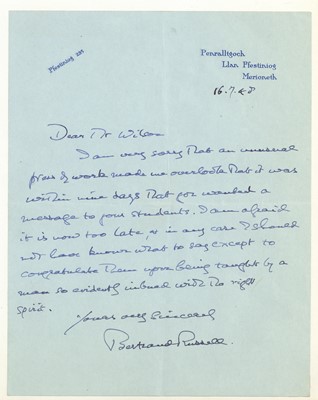 Ffestiniog 201
Penralltgoch
Llan Ffestiniog
Merioneth
16.7.48
Dear Mr Wilson
I am very sorry that an unusual
press of work made me overlook that it was
within nine days that you wanted a
message to your students. I am afraid
it is now too late, & in any case I should
not have known what to say except to
congratulate them upon being taught by a
man so evidently imbued with the right
spirit.
Yours very sincerely
Bertrand Russell.